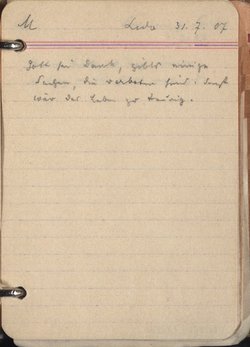 M Lido 31.7.07
Gott sei Dank, gibts einige
Sachen, die verboten sind: sonst
wär das Leben zu traurig.